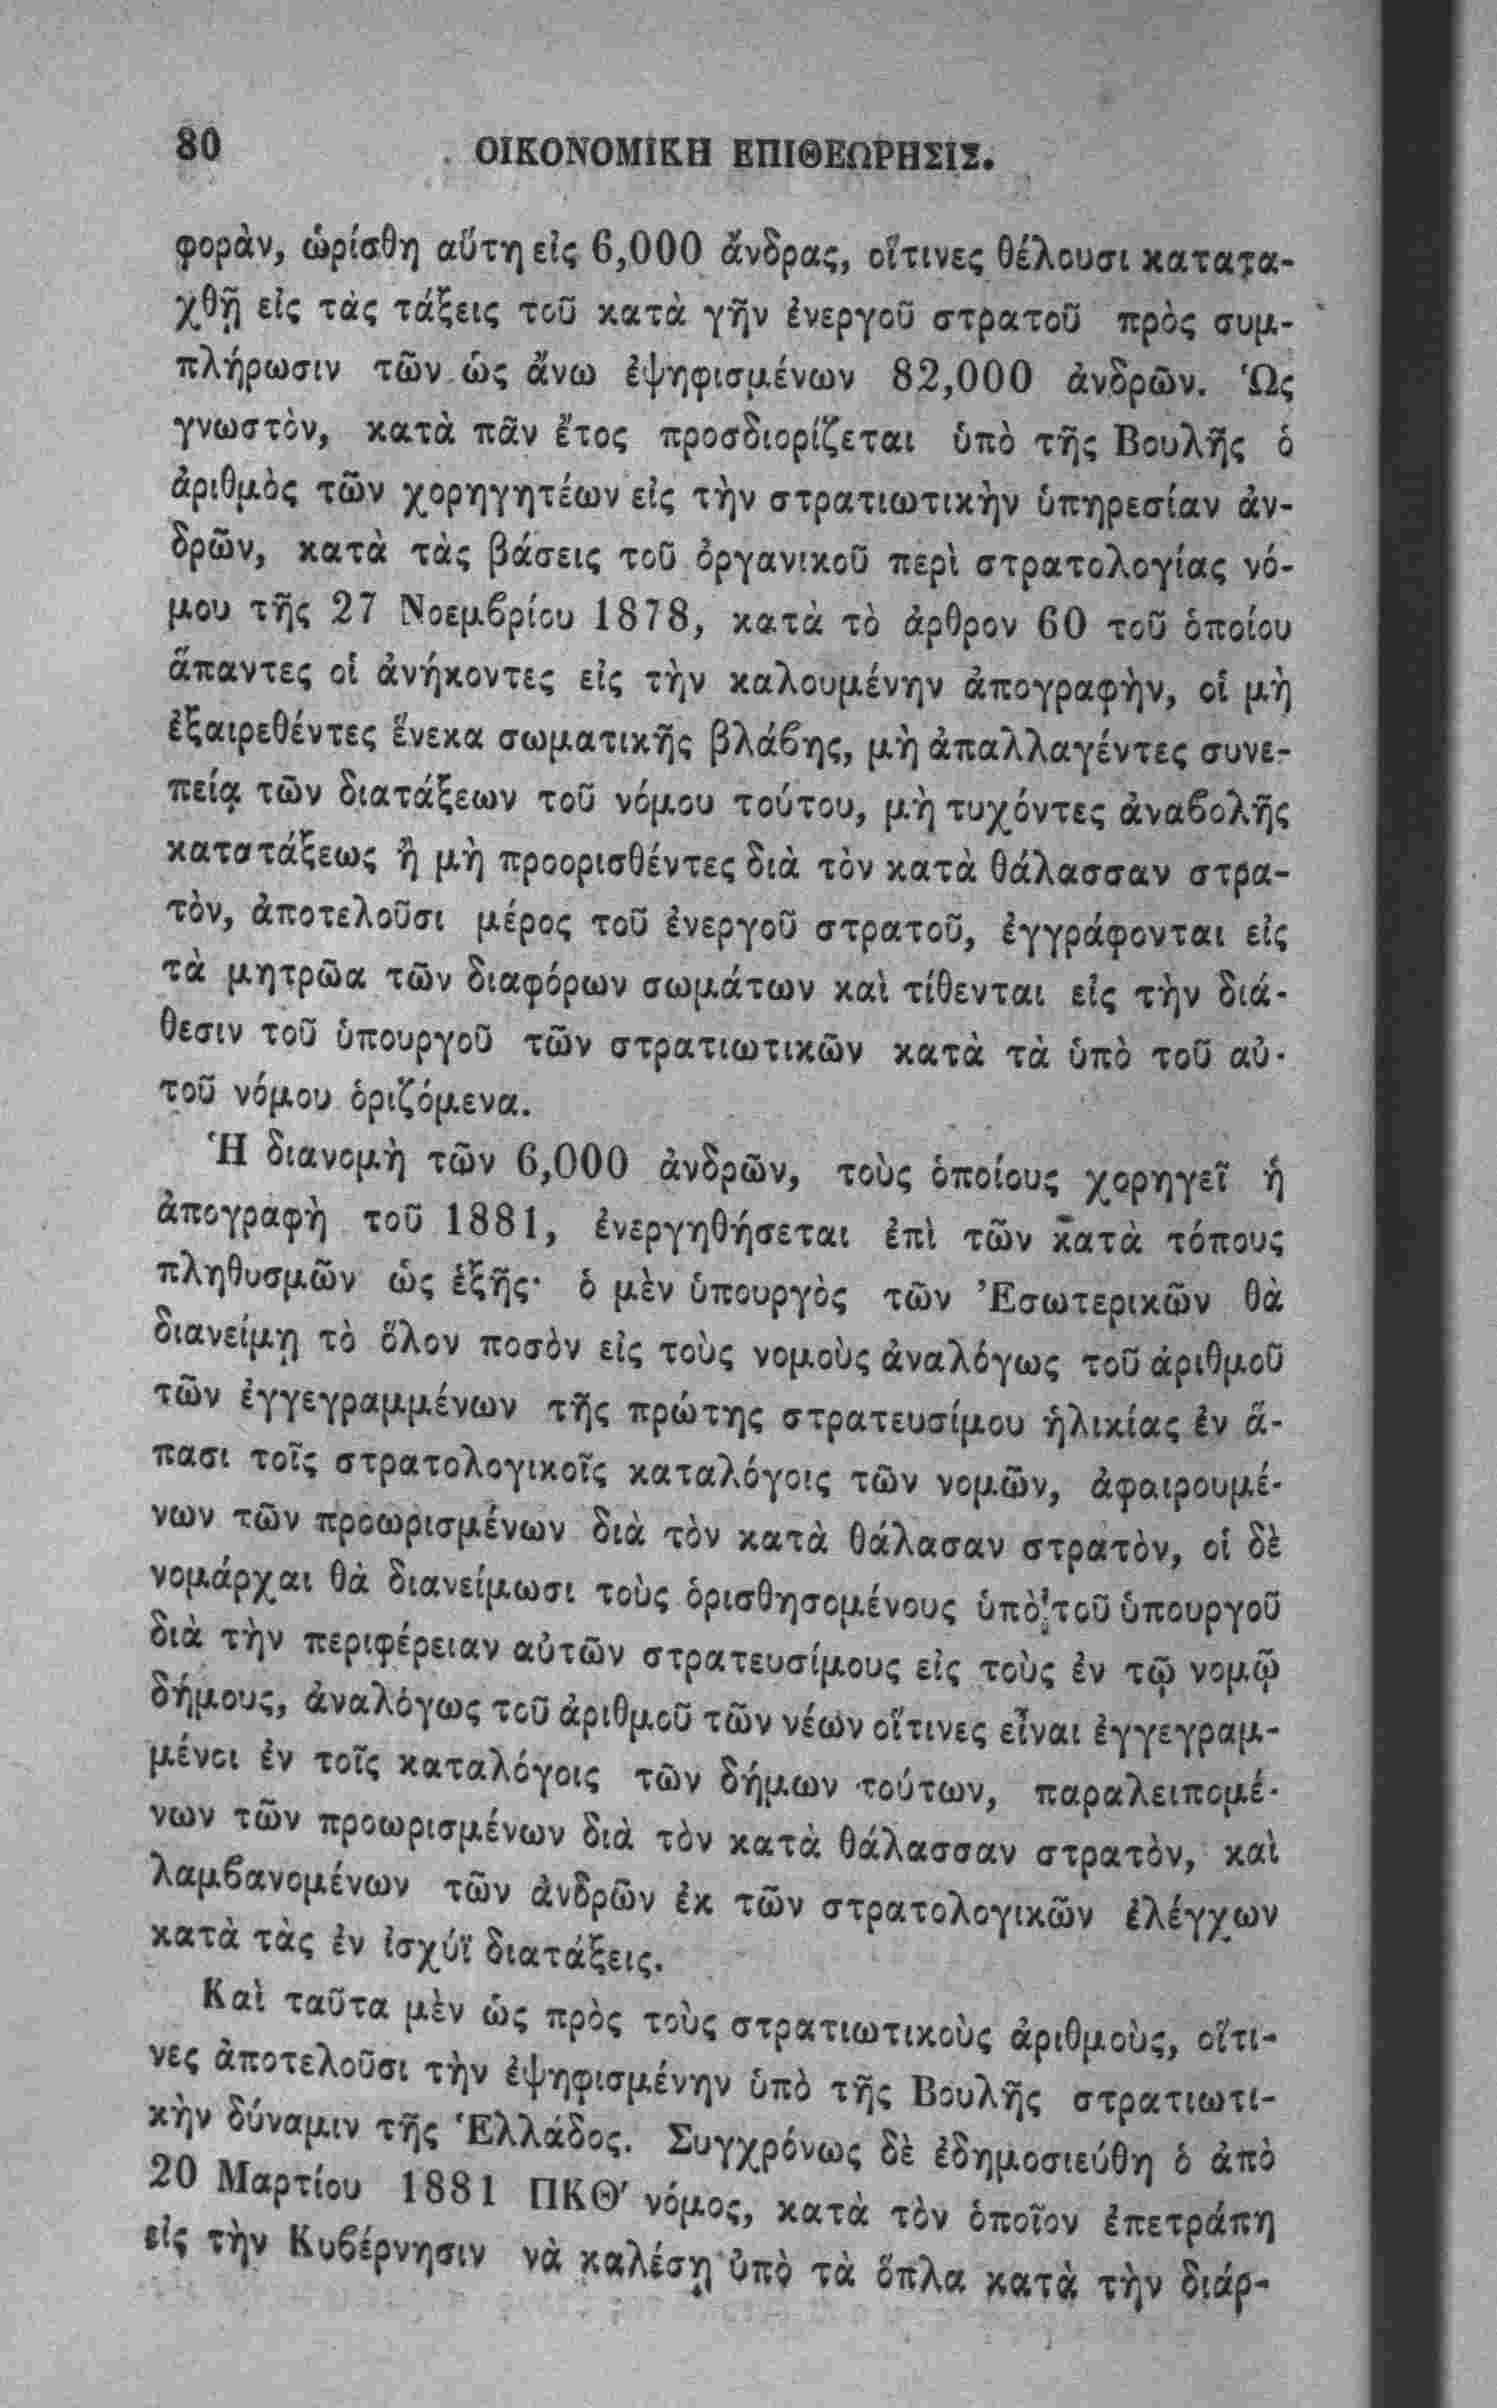 80 ΟΙΚΟΝΟΜΙΚΗ ΕΠΙΘΕΩΡΗΣΙΣ.
φορὰν, ὡρίσθη αὕτη εἰς 6,000 ἄνδρας, οἵτινες θέλουσι κατατα-
χθῇ εἰς τὰς τάξεις τοῦ κατὰ γῆν ἐνεργοῦ στρατοῦ πρὸς συμ-
πλήρωσιν τῶν ὡς ἄνω ἐψηφισμένων 82,000 ἀνδρῶν. Ὡς
γνωστὸν, κατὰ πᾶν ἔτος προσδιορίζεται ὑπὸ τῆς Βουλῆς ὁ
ἀριθμὸς τῶν χορηγητέων εἰς τὴν στρατιωτικὴν ὑπηρεσίαν ἀν-
δρῶν, κατὰ τὰς βάσεις τοῦ ὀργανικοῦ περὶ στρατολογίας νό-
μου τῆς 27 Νοεμβρίου 1878, κατὰ τὸ ἀρθρον 60 τοῦ ὁποίου
ἅπαντες οἱ ἀνήκοντες εἰς τὴν καλουμένην ἀπογραφὴν, οἱ μὴ
ἐξαιρεθέντες ἕνεκα σωματικῆς βλάβης, μὴ ἀπαλλαγέντες συνε-
πείᾳ τῶν διατάξεων τοῦ νόμου τούτου, μὴ τυχόντες ἀναβολῆς
κατατάξεως ἢ μὴ προορισθέντες διὰ τὸν κατὰ θάλασσαν στρα-
τὸν, ἀποτελοῦσι μέρος τοῦ ἐνεργοῦ στρατοῦ, ἐγγράφονται εἰς
τὰ μητρῶα τῶν διαφόρων σωμάτων καὶ τίθενται εἰς τὴν διά-
θεσιν τοῦ ὑπουργοῦ τῶν στρατιωτικῶν κατὰ τὰ ὑπὸ τοῦ αὐ-
τοῦ νόμου ὁριζόμενα.
Ἡ διανομὴ τῶν 6,000 ἀνδρῶν, τοὺς ὁποίους χορηγεῖ ἡ
ἀπογραφὴ τοῦ 1881, ἐνεργηθήσεται ἐπὶ τῶν κατὰ τόπους
πληθυσμῶν ὡς ἑξῆς· ὁ μὲν ὑπουργὸς τῶν Ἐσωτερικῶν θὰ
διανείμῃ τὸ ὅλον ποσὸν εἰς τοὺς νομοὺς ἀναλόγως τοῦ ἀριθμοῦ
τῶν ἐγγεγραμμένων τῆς πρώτης στρατευσίμου ἡλικίας ἐν ἅ-
πασι τοῖς στρατολογικοῖς καταλόγοις τῶν νομῶν, ἀφαιρουμέ-
νων τῶν προωρισμένων διὰ τὸν κατὰ θάλασαν στρατὸν, οἱ δὲ
νομάρχαι θὰ διανείμωσι τοὺς ὁρισθησομένους ὑπὸ τοῦ ὑπουργοῦ
διὰ τὴν περιφέρειαν αὐτῶν στρατευσίμους εἰς τοὺς ἐν τῷ νομῷ
δήμους, ἀναλόγως τοῦ ἀριθμοῦ τῶν νέων οἵτινες εἶναι ἐγγεγραμ-
μένοι ἐν τοῖς καταλόγοις τῶν δήμων τούτων, παραλειπομέ-
νων τῶν προωρισμένων διὰ τὸν κατὰ θάλασσαν στρατὸν, καὶ
λαμβανομένων τῶν ἀνδρῶν ἐκ τῶν στρατολογικῶν ἐλέγχων
κατὰ τὰς ἐν ἰσχύϊ διατάξεις.
Καὶ ταῦτα μὲν ὡς πρὸς τοὺς στρατιωτικοὺς ἀριθμοὺς, οἵτι-
νες ἀποτελοῦσι τὴν ἐψηφισμένην ὑπὸ τῆς Βουλῆς στρατιωτι-
κὴν δύναμιν τῆς Ἑλλάδος. Συγχρόνως δὲ ἐδημοσιεύθη ὁ ἀπὸ
20 Μαρτίου 1881 ΠΚΘ′ νόμος, κατὰ τὸν ὁποῖον ἐπετράπη
εἰς τὴν Κυβέρνησιν νὰ καλέσῃ ὑπὸ τὰ ὅπλα κατὰ τὴν διάρ-